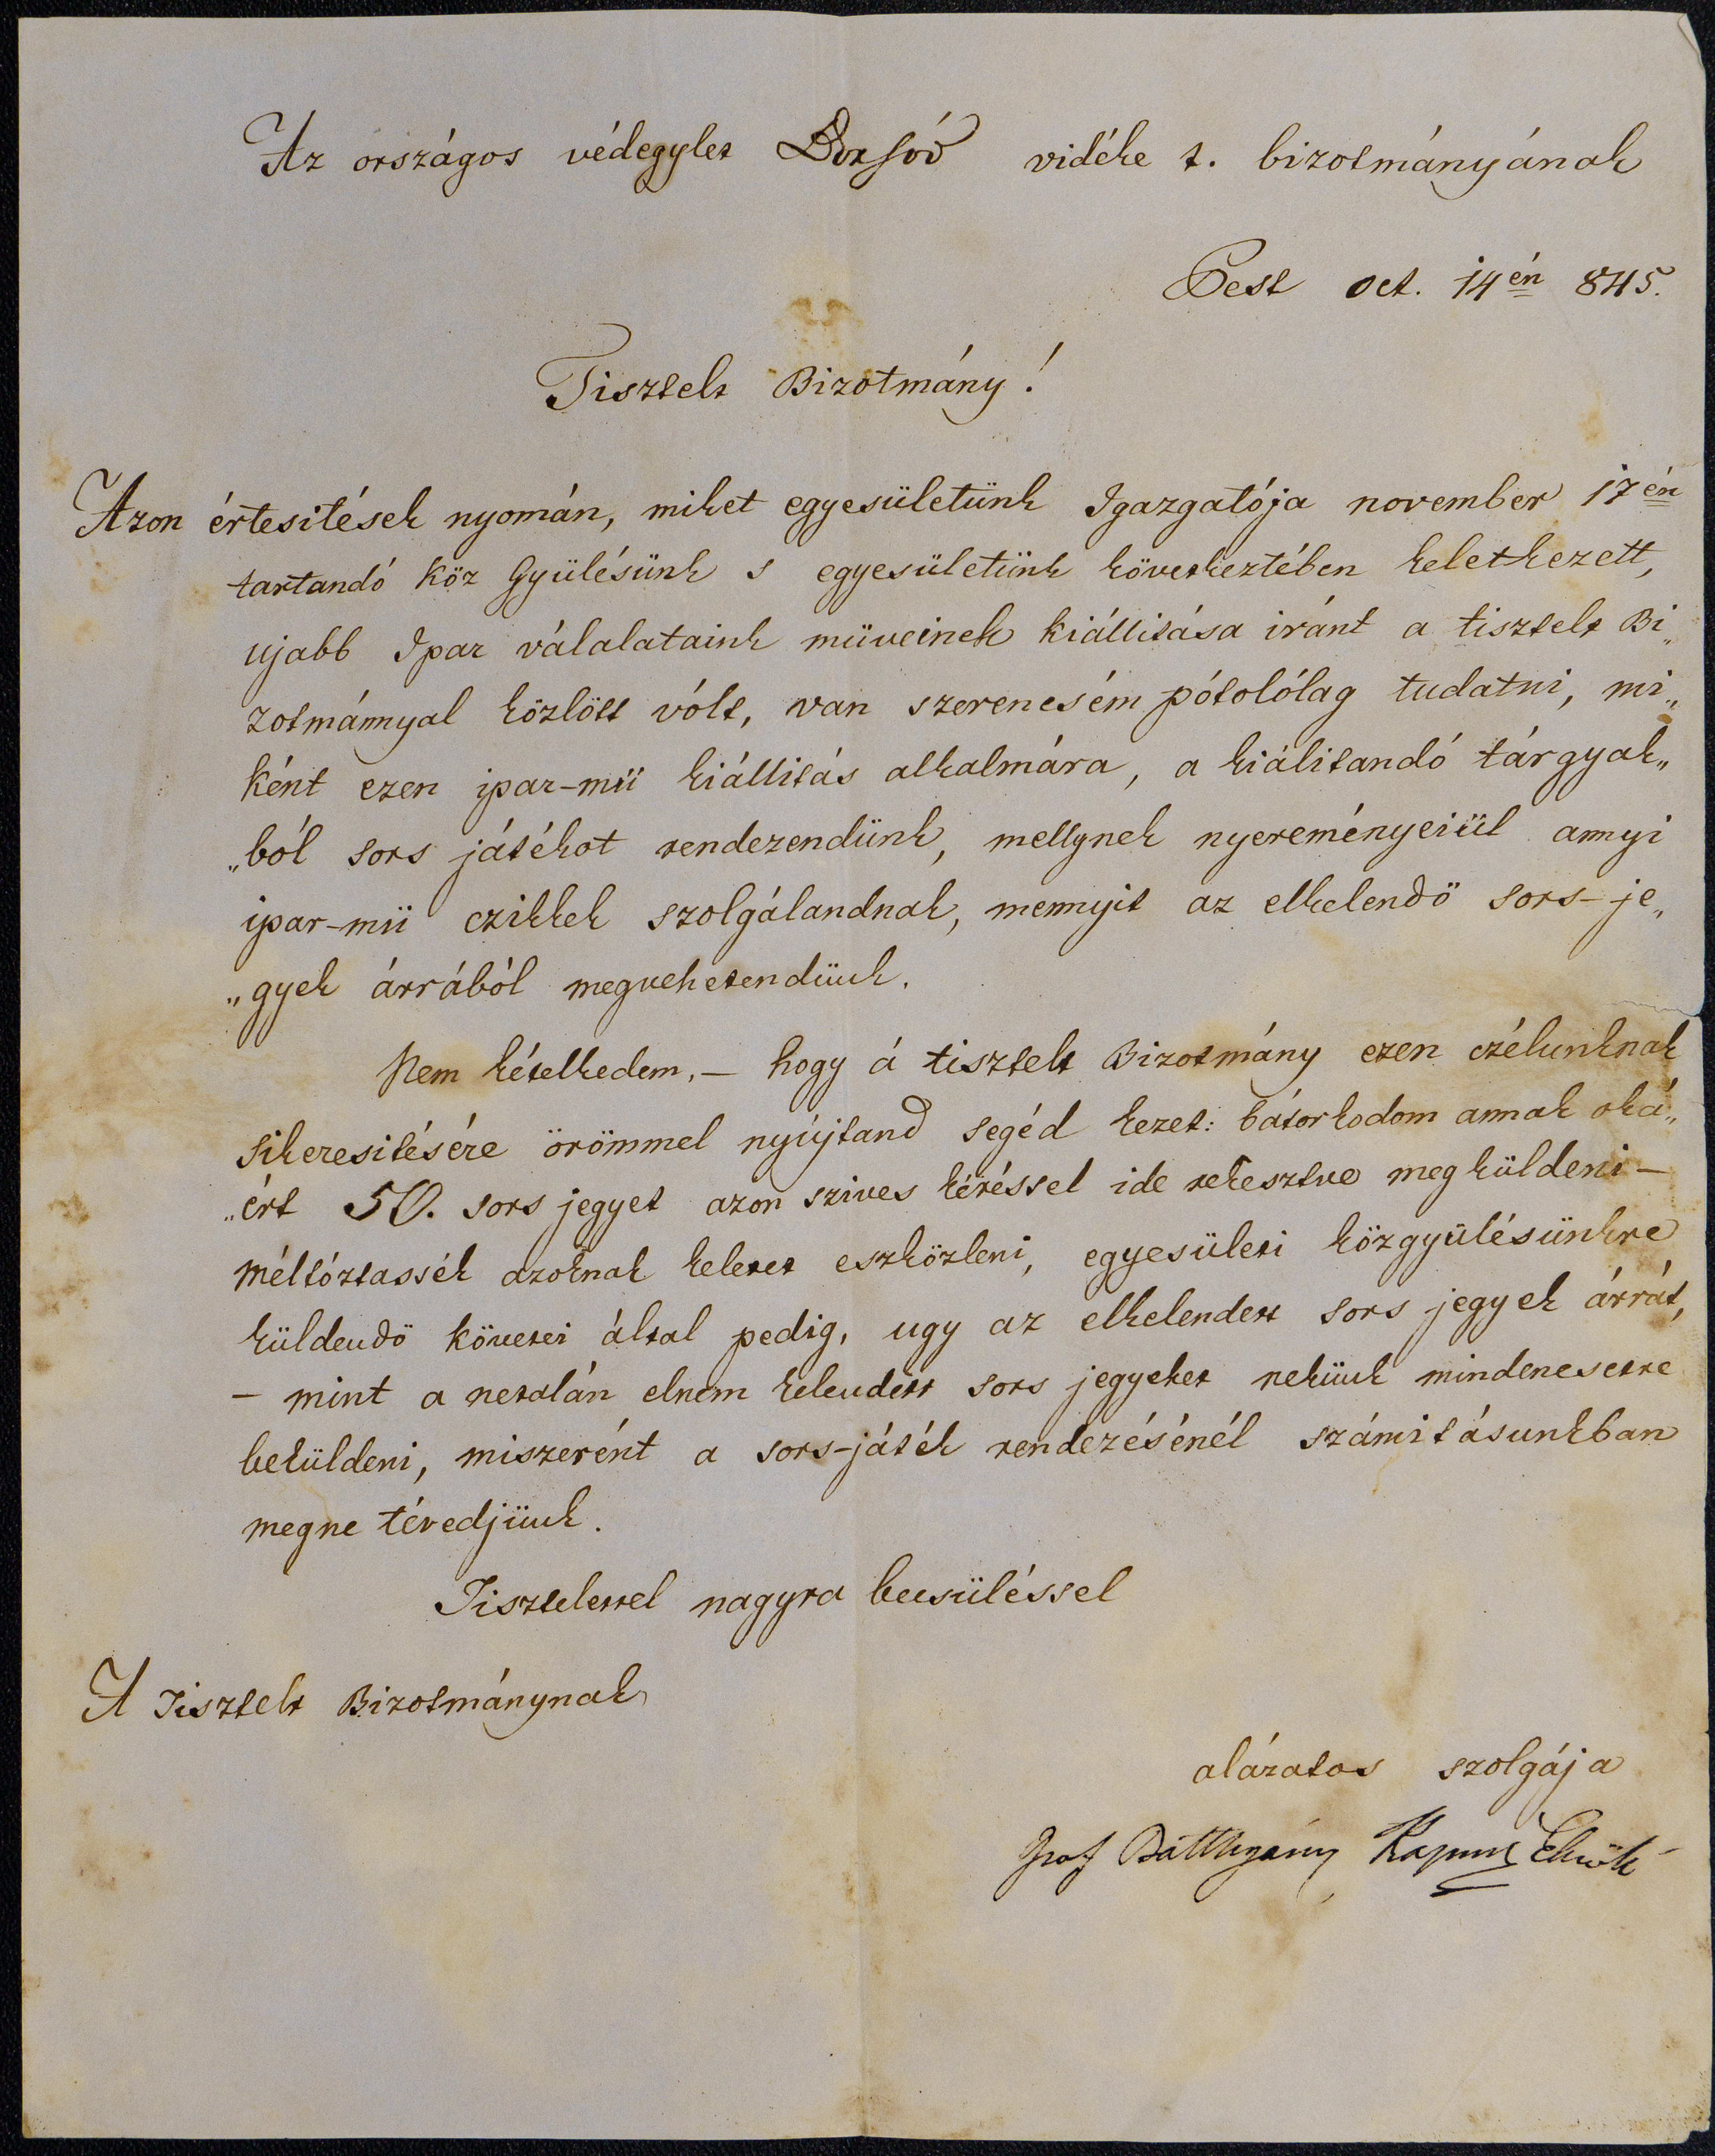 Az országos védegylet Borsód vidéke t. bizotmányának
Pest oct. 14én 845.
Tisztelt Bizotmány!
Azon értesitések nyomán, miket egyesületünk Igazgatója november 17én
tartandó köz Gyülésünk s egyesületünk következtében keletkezett,
ujabb Ipar válalataink müveinek kiállitása iránt a tisztelt Bi„
zotmánnyal közlött vólt, van szerencsém pótolólag tudatni, mi„
ként ezen ipar-mü kiállitás alkalmára, a kiálitandó tárgyak„
„ból sors játékot rendezendünk, mellynek nyereményeiül annyi
ipar-mü czikkek szolgálandnak, mennyit az elkelendö sors-je„
„gyek árrából megvehetendünk.
Nem kételkedem, – hogy á tisztelt Bizotmány ezen czélunknak
sikeresitésére örömmel nyújtand segéd kezet: bátorkodom annak oká„
„ért 50. sors jegyet azon szives kéréssel ide rekesztve megküldeni –
méltóztassék azoknak keletet eszközleni, egyesületi közgyülésünkre
küldendö követei által pedig, ugy az elkelendett sors jegyek árrát,
– mint a netalán elnem kelendett sors jegyeket nekünk mindenesetre
beküldeni, miszerént a sors-játék rendezésénél számitásunkban
megne tévedjünk.
Tisztelettel nagyra becsüléssel
A Tisztelt Bizotmánynak
alázatos szolgája
Gróf Batthyány Elnök